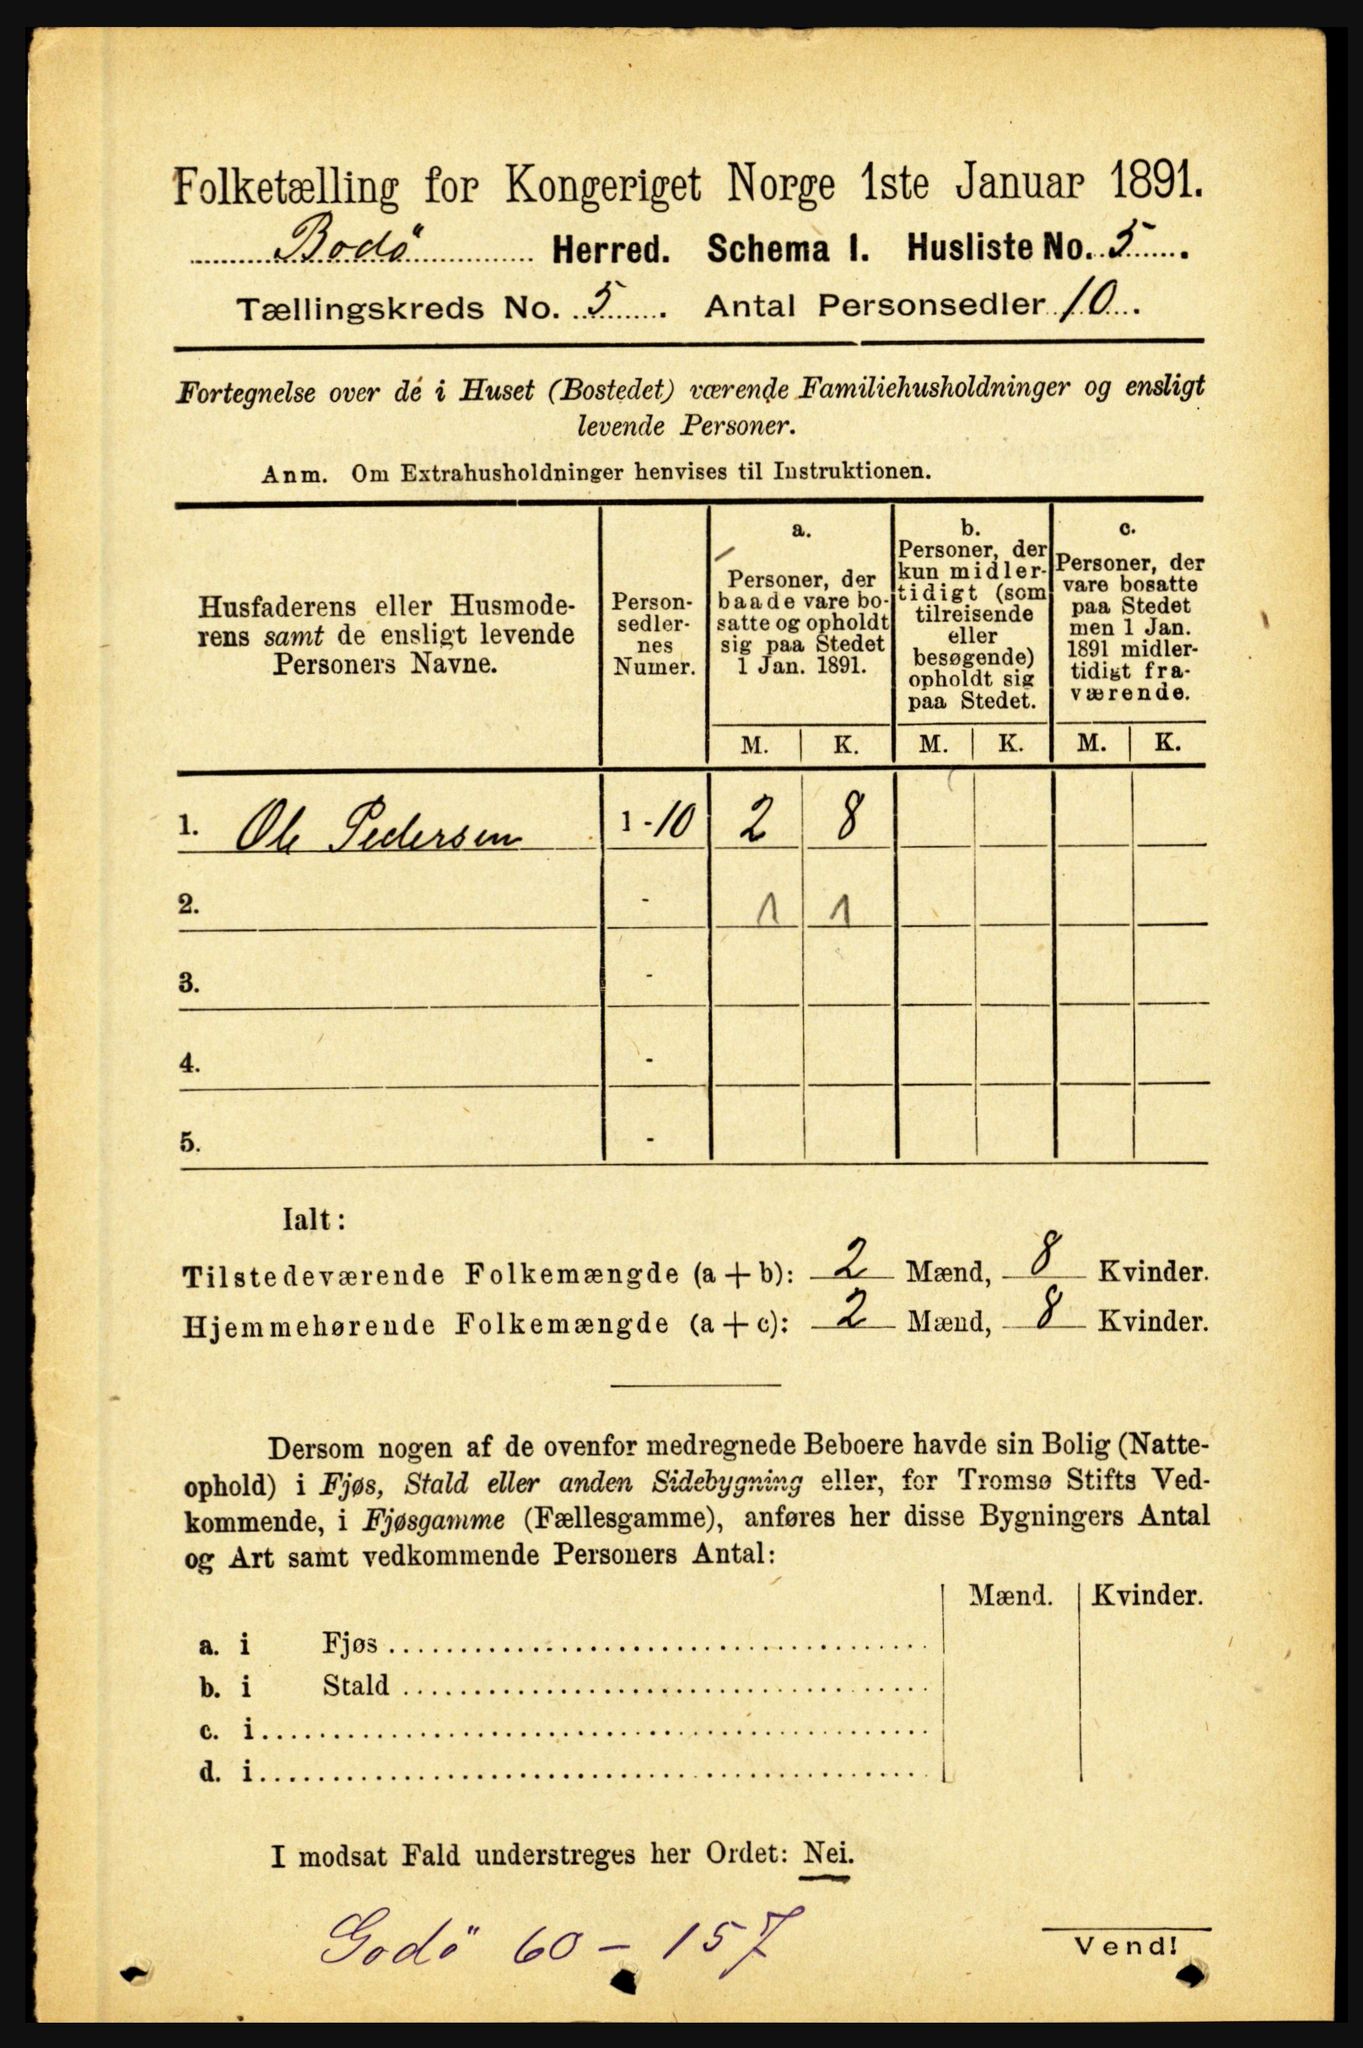 Folketælling for Kongeriget Norge 1ste Januar 1891.
Bodö Herred. Schema I. Husliste No. 5.
Tællingskreds No. 5. Antal Personsedler 10.
Fortegnelse over de i Huset (Bostedet) værende Familiehusholdninger og ensligt
levende Personer.
Anm. Om Extrahusholdninger henvises til Instruktionen.
Husfaderens eller Husmode-
rens samt de ensligt levende
Personers Navne.
Person-
sedler-
nes
Numer.
a.
Personer, der
baade vare bo-
satte og opholdt
sig paa Stedet
1 Jan. 1891.
b.
Personer, der
kun midler-
tidigt (som
tilreisende
eller
besøgende)
opholdt sig
paa Stedet.
c.
Personer, der
vare bosatte
paa Stedet
men 1 Jan.
1891 midler-
tidigt fra-
værende.
M. K. M. K. M. K.
1. Ole Pedersen 1-10 2 8
2. - 1 1
3. -
4. -
5. -
Ialt:
Tilstedeværende Folkemængde (a + b): 2 Mænd, 8 Kvinder.
Hjemmehørende Folkemængde (a + c): 2 Mænd, 8 Kvinder.
Dersom nogen af de ovenfor medregnede Beboere havde sin Bolig (Natte-
ophold) i Fjøs, Stald eller anden Sidebygning eller, for Tromsø Stifts Ved-
kommende, i Fjøsgamme (Fællesgamme), anføres her disse Bygningers Antal
og Art samt vedkommende Personers Antal:
Mænd. Kvinder.
a. i Fjøs
b. i Stald
c. i
d. i
I modsat Fald understreges her Ordet: Nei.
Godö 60 - 157
Vend!